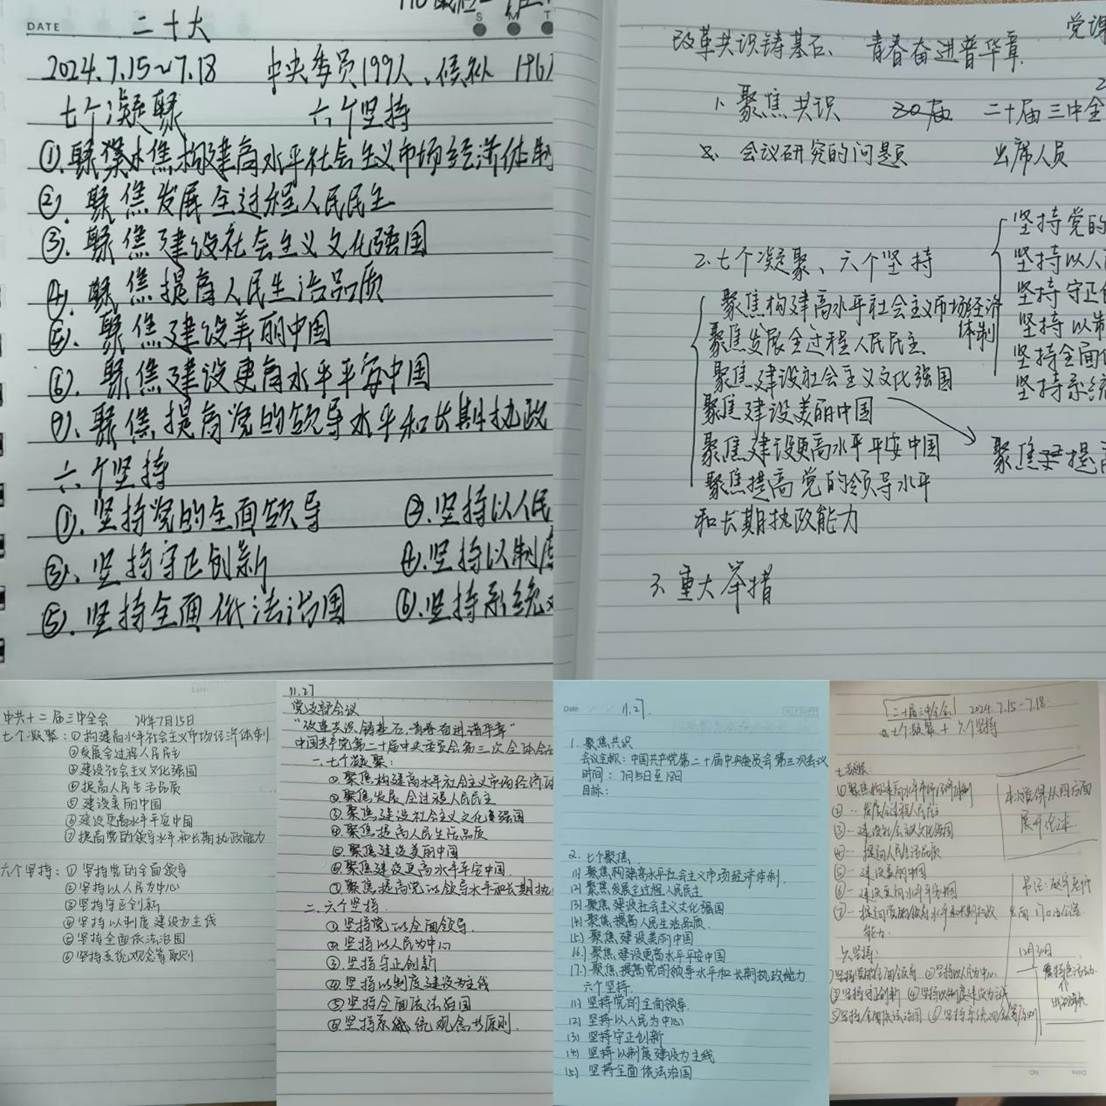 DATE
S M T
二十大
2024.7.15~7.18 中央委员199人、候补
七个凝聚 六个坚持
①.聚焦构建高水平社会主义市场经济体制
②.聚焦发展全过程人民民主
③.聚焦建设社会主义文化强国
④.聚焦提高人民生活品质
⑤.聚焦建设美丽中国
⑥.聚焦建设更高水平平安中国
⑦.聚焦提高党的领导水平和长期执政
六个坚持
①.坚持党的全面领导 ②.坚持以人民
③.坚持守正创新 ④.坚持以制度
⑤.坚持全面依法治国 ⑥.坚持系统
党课
改革共识铸基石、青春奋进普华章.
1. 聚焦共识 二十届三中全
会议研究的问题 出席人员
2.七个凝聚、六个坚持
聚焦构建高水平社会主义市场经济体制
聚焦发展全过程人民民主
聚焦建设社会主义文化强国
聚焦建设美丽中国
聚焦建设更高水平平安中国
聚焦提高党的领导水平
和长期执政能力
坚持党的
坚持以人
坚持守正
坚持以制
坚持全面
坚持系统
聚焦提高
3.重大举措
中共十二届三中全会 24年7月15日
七个凝聚:①构建高水平社会主义市场经济体制
②发展全过程人民民主
③建设社会主义文化强国
④提高人民生活品质
⑤建设美丽中国
⑥建设更高水平平安中国
⑦提高党的领导水平和长期执政能力
六个坚持:①坚持党的全面领导
②坚持以人民为中心
③坚持守正创新
④坚持以制度建设为主线
⑤坚持全面依法治国
⑥坚持系统观念等原则
11.27
党支部会议
"改革共识铸基石,青春奋进谱华章"
中国共产党第二十届中央委员会第三次全体会
一.七个凝聚:
①聚焦构建高水平社会主义市场经济
②聚焦发展全过程人民民主
③聚焦建设社会主义文化强国
④聚焦提高人民生活品质
⑤聚焦建设美丽中国
⑥聚焦建设更高水平平安中国
⑦聚焦提高党的领导水平和长期执
二.六个坚持.
①坚持党的全面领导.
②坚持以人民为中心
③坚持守正创新
④坚持以制度建设为主线
⑤坚持全面依法治国
⑥坚持系统观念等原则.
Date 11.27.
1. 聚焦共识
中国共产党第二十届中央委员会第三次会议
时间:7月15日至18日
目标:
2.七个聚焦
(1)聚焦构建高水平社会主义市场经济体制.
(2)聚焦发展全过程人民民主
(3)聚焦建设社会主义文化强国
(4)聚焦提高人民生活品质.
(5)聚焦建设美丽中国
(6)聚焦建设更高水平平安中国
(7)聚焦提高党的领导水平和长期执政能力
六个坚持.
(1)坚持党的全面领导.
(2)坚持以人民为中心
(3)坚持守正创新
(4)坚持以制度建设为主线
(5)坚持全面依法治国
二十届三中全会 2024.7.15-7.18.
七个凝聚+六个坚持
②… 发展全过程人民民主
③… 建设社会主义文化强国
④… 提高人民生活品质
⑤… 建设美丽中国
⑥… 建设更高水平平安中国
能力.
六坚持:
①坚持党的全面领导 ②坚持以人民为中心
③坚持守正创新 ④坚持以制度建设为主线
⑤坚持全面依法治国